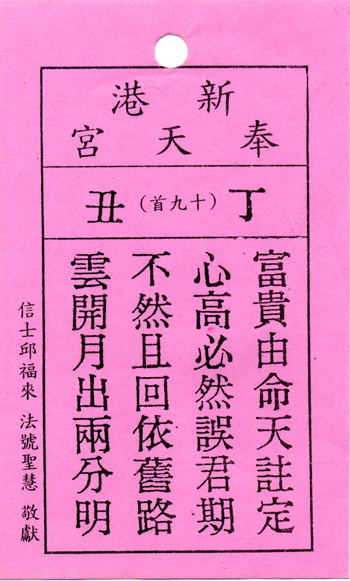 新港
奉天宮
丁（十九首）丑
富貴由命天註定
心高必然誤君期
不然且回依舊路
雲開月出兩分明
信士邱福來 法號聖慧 敬獻